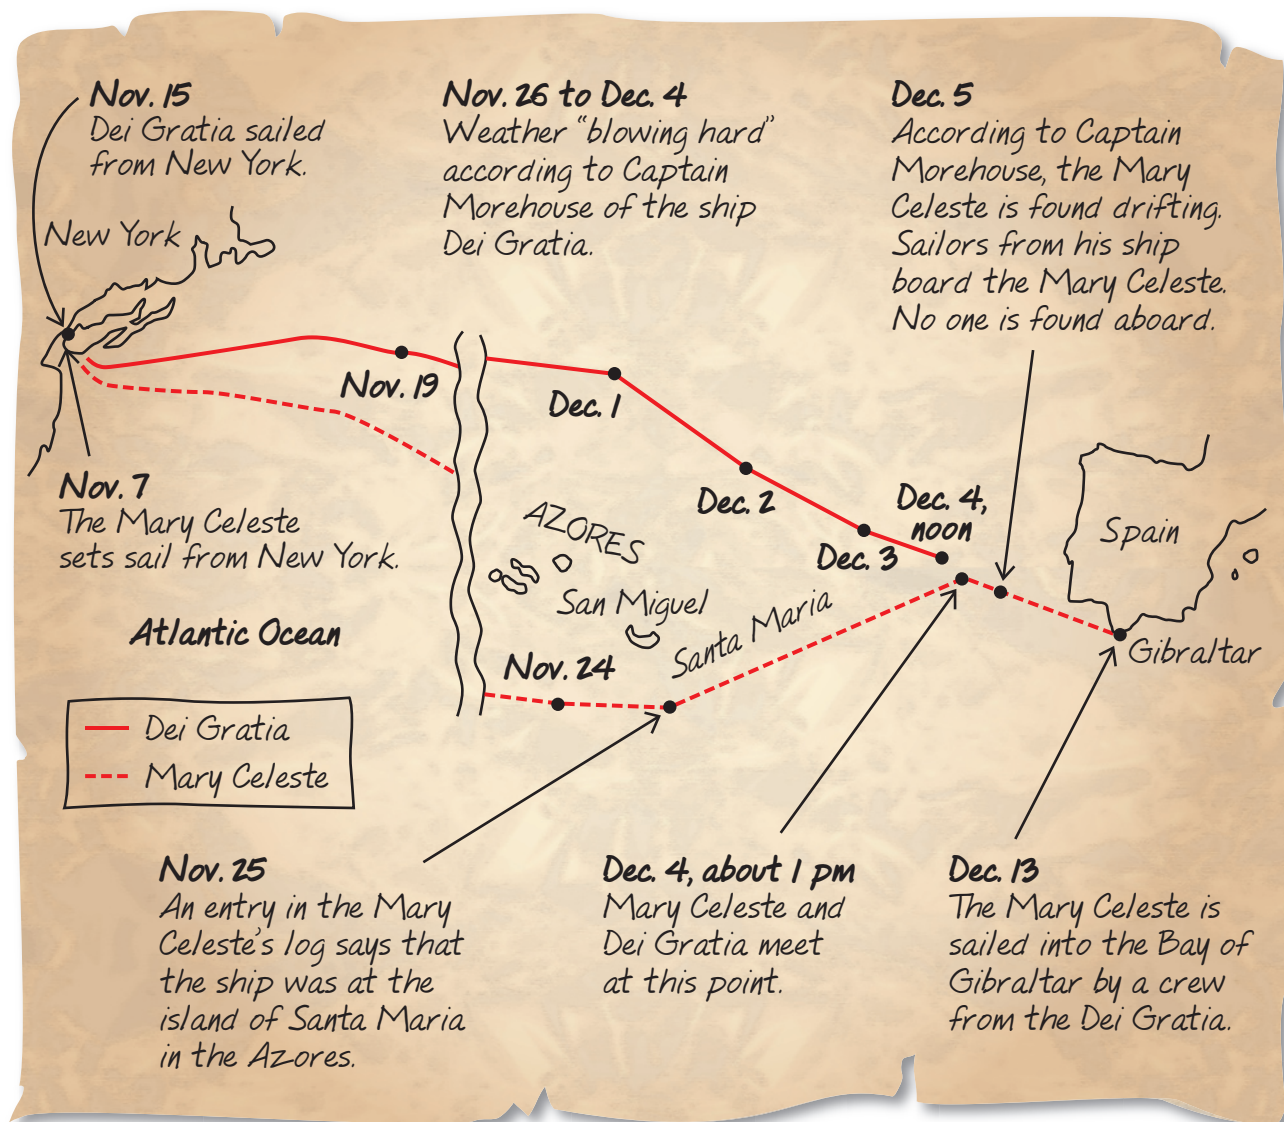 Nov. 15
Dei Gratia sailed
from New York.
Nov. 26 to Dec. 4
Weather “blowing hard”
according to Captain
Morehouse of the ship
Dei Gratia.
Dec. 5
According to Captain
Morehouse, the Mary
Celeste is found drifting.
Sailors from his ship
board the Mary Celeste.
No one is found aboard.
New York
Nov. 19
Dec. 1
Dec. 2
Dec. 3
Dec. 4,
noon
Nov. 7
The Mary Celeste
sets sail from New York.
AZORES
San Miguel
Santa Maria
Spain
Gibraltar
Atlantic Ocean
Nov. 24
Dei Gratia
Mary Celeste
Nov. 25
An entry in the Mary
Celeste’s log says that
the ship was at the
island of Santa Maria
in the Azores.
Dec. 4, about 1 pm
Mary Celeste and
Dei Gratia meet
at this point.
Dec. 13
The Mary Celeste is
sailed into the Bay of
Gibraltar by a crew
from the Dei Gratia.